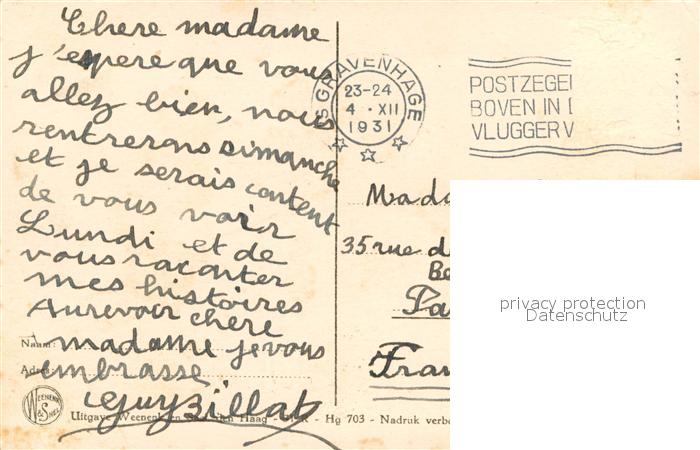 Chere madame
j'espere que vous
allez bien, nous
rentrerons Dimanche
et je serais content
de vous voir
Lundi et de
vous raconter
mes histoires
Aurevoir chere
madame je vous
embrasse
Guy Billat
'S GRAVENHAGE
23-24
4 · XII
1931
POSTZEGEL
BOVEN IN D
VLUGGER V
Mada
35 rue d
Be
Pa
Fran
privacy protection
Datenschutz
Naam:
Adres:
WEENENK
& SNEL
Uitgave Weenenk en Snel Den Haag - Hg 703 - Nadruk verbo